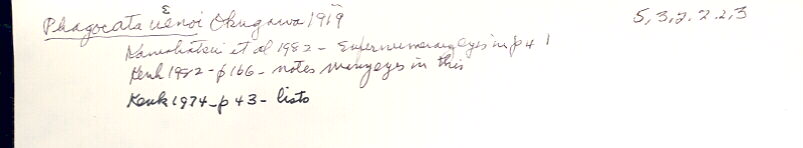 Phagocata uenoi Okugawa 1919 5,3,2.2.2,3
et al 1982 - Supernumerary eyes in p 41
Kenk 1982 - p 166 - notes many eyes in this
Kenk 1974 - p 43 - lists